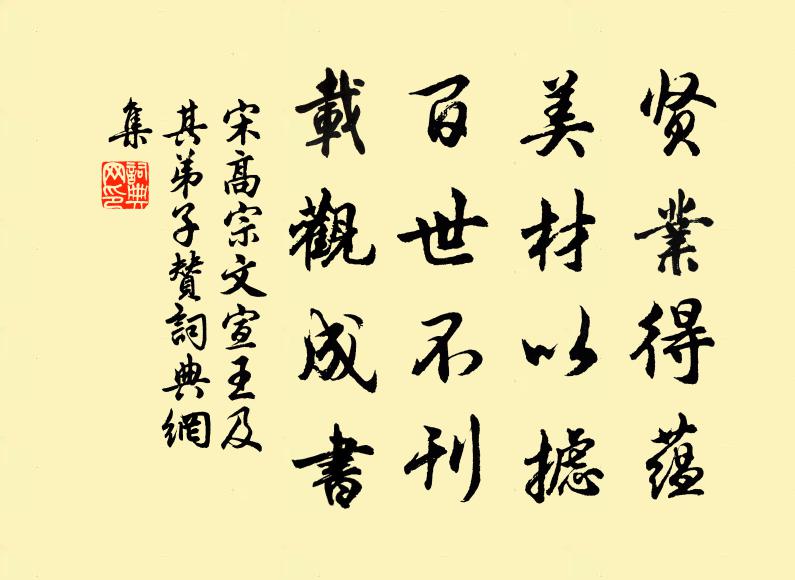 贤業得蕴
美材以攄
百世不刊
載觀成書
宋高宗文宣王及
其弟子贊詞典網
集
詞典網印